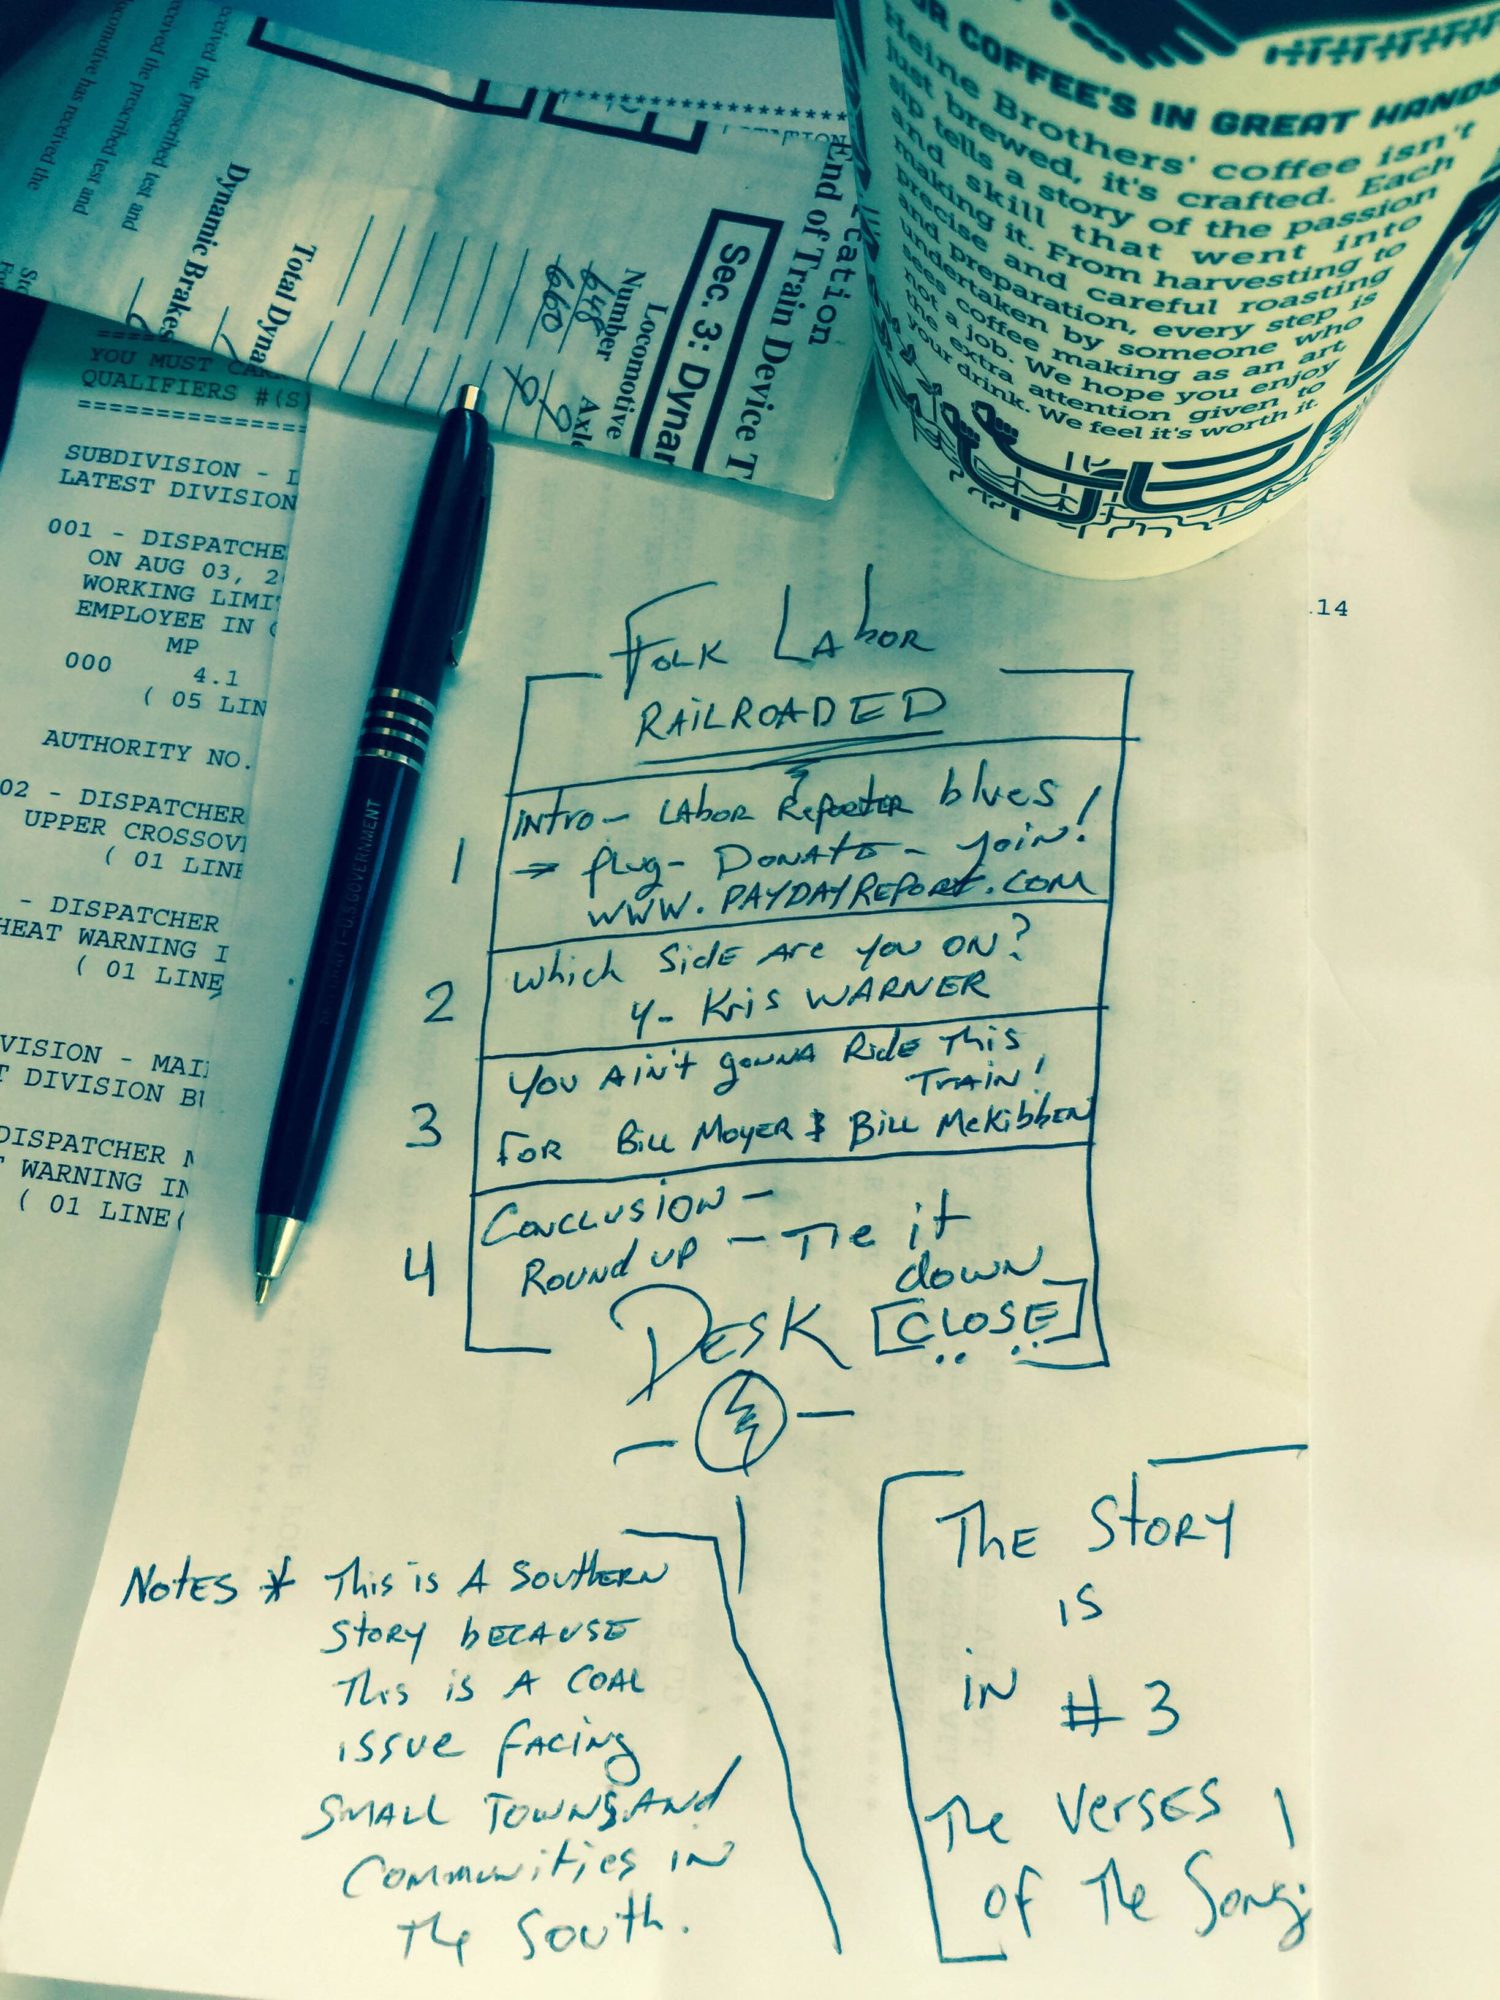 OR COFFEE'S IN GREAT HANDS
Heine Brothers' coffee isn't
just brewed, it's crafted. Each
sip tells a story of the passion
and skill that went into
making it. From harvesting to
precise and careful roasting
and preparation, every step is
undertaken by someone who
sees coffee making as an art
not a job. We hope you enjoy
the extra attention given to
your drink. We feel it's worth it.
End of Train Device T
Sec. 3: Dynam
Locomotive
Number Axle
648 9
660 9
Total Dyna
Dynamic Brakes
received the prescribed test and
received the prescribed test and
locomotive has received the
YOU MUST CAR
QUALIFIERS #(S)
SUBDIVISION -
LATEST DIVISION
001 - DISPATCHE
ON AUG 03, 2
WORKING LIMI
EMPLOYEE IN
MP
000 4.1
( 05 LIN
AUTHORITY NO.
02 - DISPATCHER
UPPER CROSSOV
( 01 LINE
- DISPATCHER
HEAT WARNING I
( 01 LINE
VISION - MAI
T DIVISION BU
DISPATCHER
T WARNING IN
( 01 LINE(
U.S. GOVERNMENT
.14
FOLK LAbOR
RAILROADED
1 INTRO - LAbOR REPORTER blues
→ Plug - DONATE - Join!
WWW.PAYDAYREPORT.COM
2 Which SidE ARE You ON?
4- KRiS WARNER
3 YOU AiN't gonna RidE This
TRAiN!
FOR Bill MOYER & Bill McKibbEN
4 CONCLUSION -
ROUNd UP - TiE it
down
DESK [CLOSE]
NOtES * This is A SOUthERN
StORY bECAUSE
This is A COAL
issuE FACiNg
SMALL TOWNS ANd
COMMUNitiES iN
thE SOUth.
ThE StORY
iS
iN # 3
ThE VERSES
OF ThE SONg